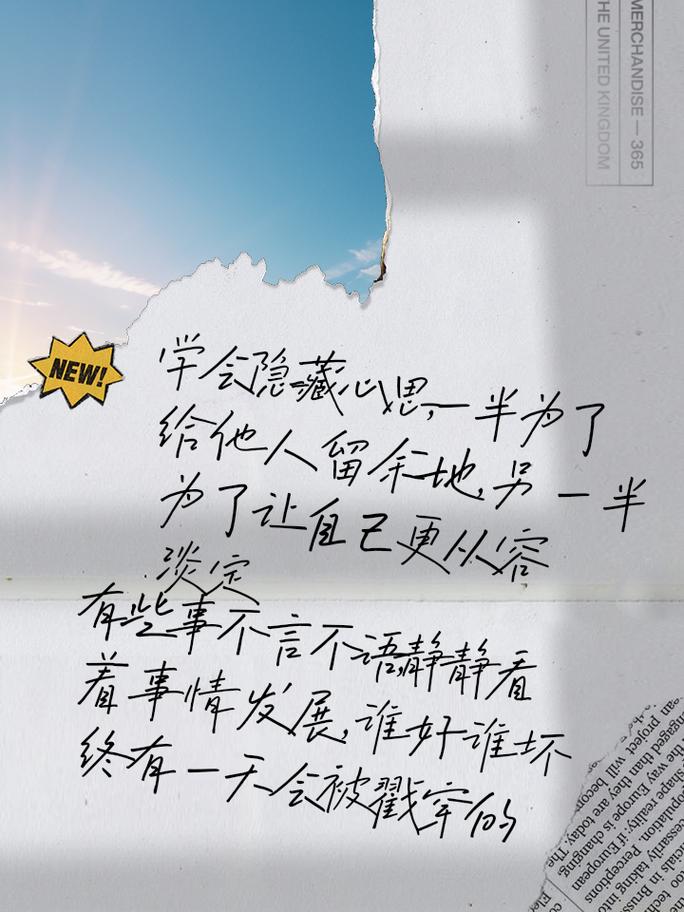 MERCHANDISE — 365
THE UNITED KINGDOM
NEW!
学会隐藏心思,一半为了
给他人留余地,另一半
为了让自己更从容
淡定
有些事不言不语,静静看
着事情发展,谁好谁坏
终有一天会被戳穿的
project will
engaged than they are today. The
the way Europe is changing
shape reality: if European
population. Perceptions
necessarily taking into